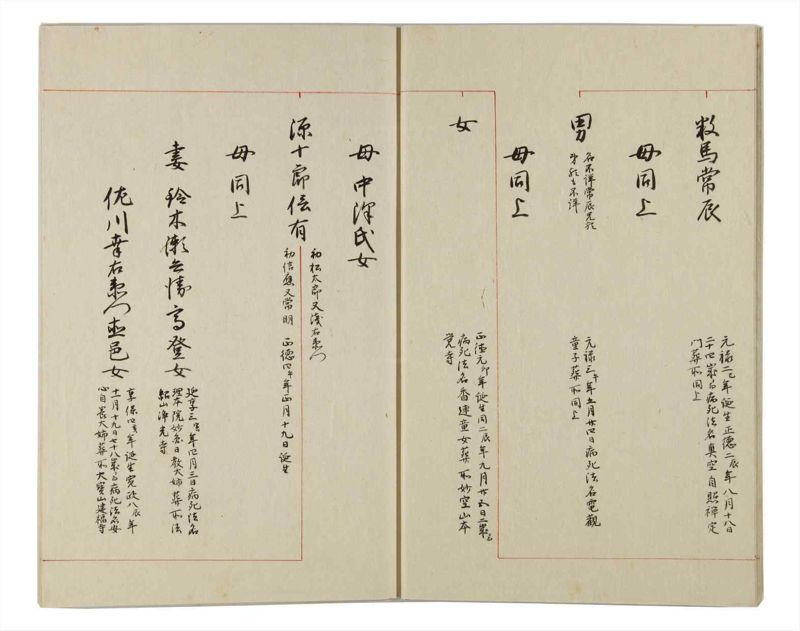 数馬常辰
元禄二巳年誕生正徳二辰年八月十八日
二十四歳ニ而病死法名真空自照禅定
門葬所同上
母同上
男
名不詳常辰兄歟
弟歟モ不詳
元禄三午年五月廿四日病死法名電観
童子葬所同上
母同上
女
正徳元卯年誕生同二辰年九月廿五日二歳ニ而
病死法名香蓮童女葬所妙空山本
覚寺
母中澤氏女
源十郎信有
初松太郎又浅右衛門
初信應又常明 正徳四午年正月十九日誕生
母同上
妻鈴木瀬兵衛高登女
延享三寅年四月三日病死法名
理本院妙応日教大姉葬所法
紹山浄光寺
佐川幸右衛門直邑女
享保四亥年誕生寛政八辰年
十一月十九日七十八歳ニ而病死法名安
心自長大姉葬所大宝山建福寺